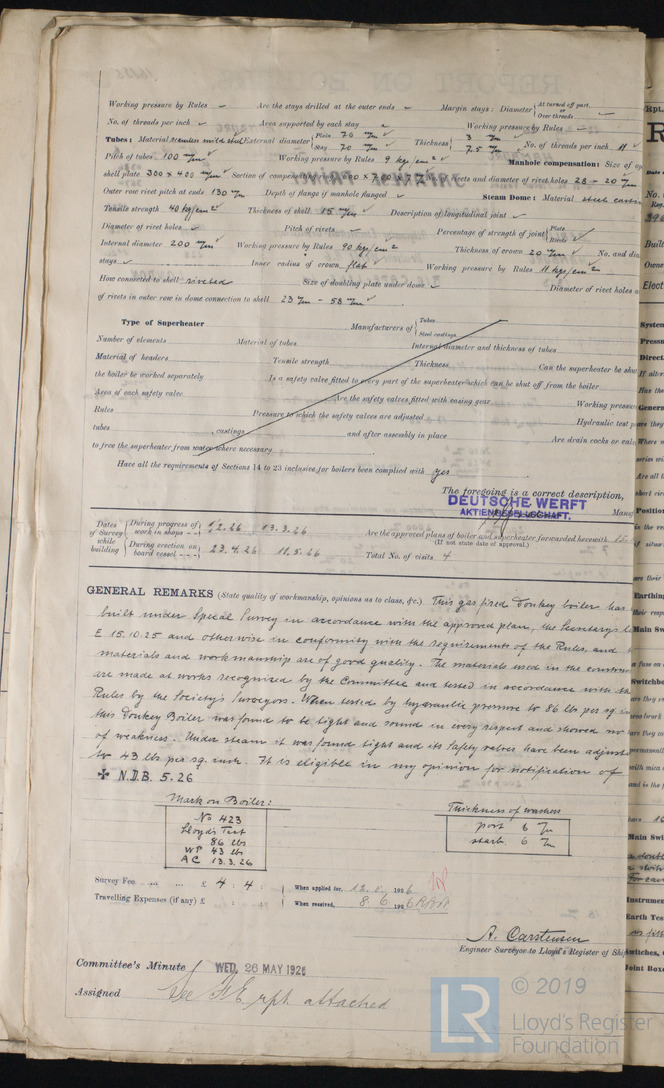 Working pressure by Rules ✓ Are the stays drilled at the outer ends ✓ Margin stays: Diameter { At turned off part, or Over threads ✓
No. of threads per inch ✓ Area supported by each stay ✓ Working pressure by Rules ✓
Tubes: Material seamless mild steel External diameter { Plain 76 m/m ✓ Stay 70 m/m ✓ Thickness { 3 m/m ✓ 7.5 m/m ✓ No. of threads per inch 11 ✓
Pitch of tubes 100 m/m ✓ Working pressure by Rules 9 kg/cm² ✓ Manhole compensation: Size of op
shell plate 300 x 400 m/m ✓ Section of compensation rivets and diameter of rivet holes 28 - 20 m/m
Outer row rivet pitch at ends 130 m/m Depth of flange if manhole flanged ✓ Steam Dome: Material steel
Tensile strength 40 kg/cm² ✓ Thickness of shell 15 m/m ✓ Description of longitudinal joint ✓
Diameter of rivet holes ✓ Pitch of rivets ✓ Percentage of strength of joint { Plate Rivets ✓
Internal diameter 200 m/m ✓ Working pressure by Rules 90 kg/cm² Thickness of crown 20 m/m ✓ No. and dia
stays ✓ Inner radius of crown flat ✓ Working pressure by Rules 11 kgs/cm² ✓
How connected to shell riveted Size of doubling plate under dome ✓ Diameter of rivet holes a
of rivets in outer row in dome connection to shell 23 m/m - 58 m/m ✓
Type of Superheater Manufacturers of { Tubes Steel castings
Number of elements Material of tubes Internal diameter and thickness of tubes
Material of headers Tensile strength Thickness Can the superheater be shu
the boiler be worked separately Is a safety valve fitted to every part of the superheater which can be shut off from the boiler
Area of each safety valve Are the safety valves fitted with easing gear Working pressu
Rules Pressure to which the safety valves are adjusted Hydraulic test p
tubes , castings and after assembly in place Are drain cocks or valv
to free the superheater from water where necessary
Have all the requirements of Sections 14 to 23 inclusive for boilers been complied with yes
The foregoing is a correct description,
DEUTSCHE WERFT
AKTIENGESELLSCHAFT. Manu
Dates of Survey while building { During progress of work in shops - - 13.3.26 Are the approved plans of boiler and superheater forwarded herewith
(If not state date of approval.)
During erection on board vessel - - - 23.4.26 11.5.26 Total No. of visits 4
GENERAL REMARKS (State quality of workmanship, opinions as to class, &c.) This gas fired Donkey boiler has
built under Special Survey in accordance with the approved plan, the Secretary's le
E 15.10.25 and otherwise in conformity with the requirements of the Rules, and
materials and workmanship are of good quality. The materials used in the construc
are made at works recognized by the Committee and tested in accordance with the
Rules by the Society's Surveyors. When tested by hydraulic pressure to 86 lbs per sq in
this Donkey Boiler was found to be tight and sound in every respect and showed no
of weakness. Under steam it was found tight and its safety valves have been adjust
to 43 lbs per sq. inch. It is eligible in my opinion for notification of
✠ N.D.B. 5.26
Mark on Boiler:
No 423
Lloyd's Test
86 lbs
WP 43 lbs
AC 13.3.26
Thickness of washers
port 6 m/m
starb. 6 m/m
Survey Fee ... ... £ 4 : 4 : When applied for, 12. 1926
Travelling Expenses (if any) £ : : When received, 8.6.1926
A. Carstensen
Engineer Surveyor to Lloyd's Register of Ship
Committee's Minute WED. 26 MAY 1926
Assigned See F.E. rpt attached
© 2019
LR
Lloyd's Register
Foundation